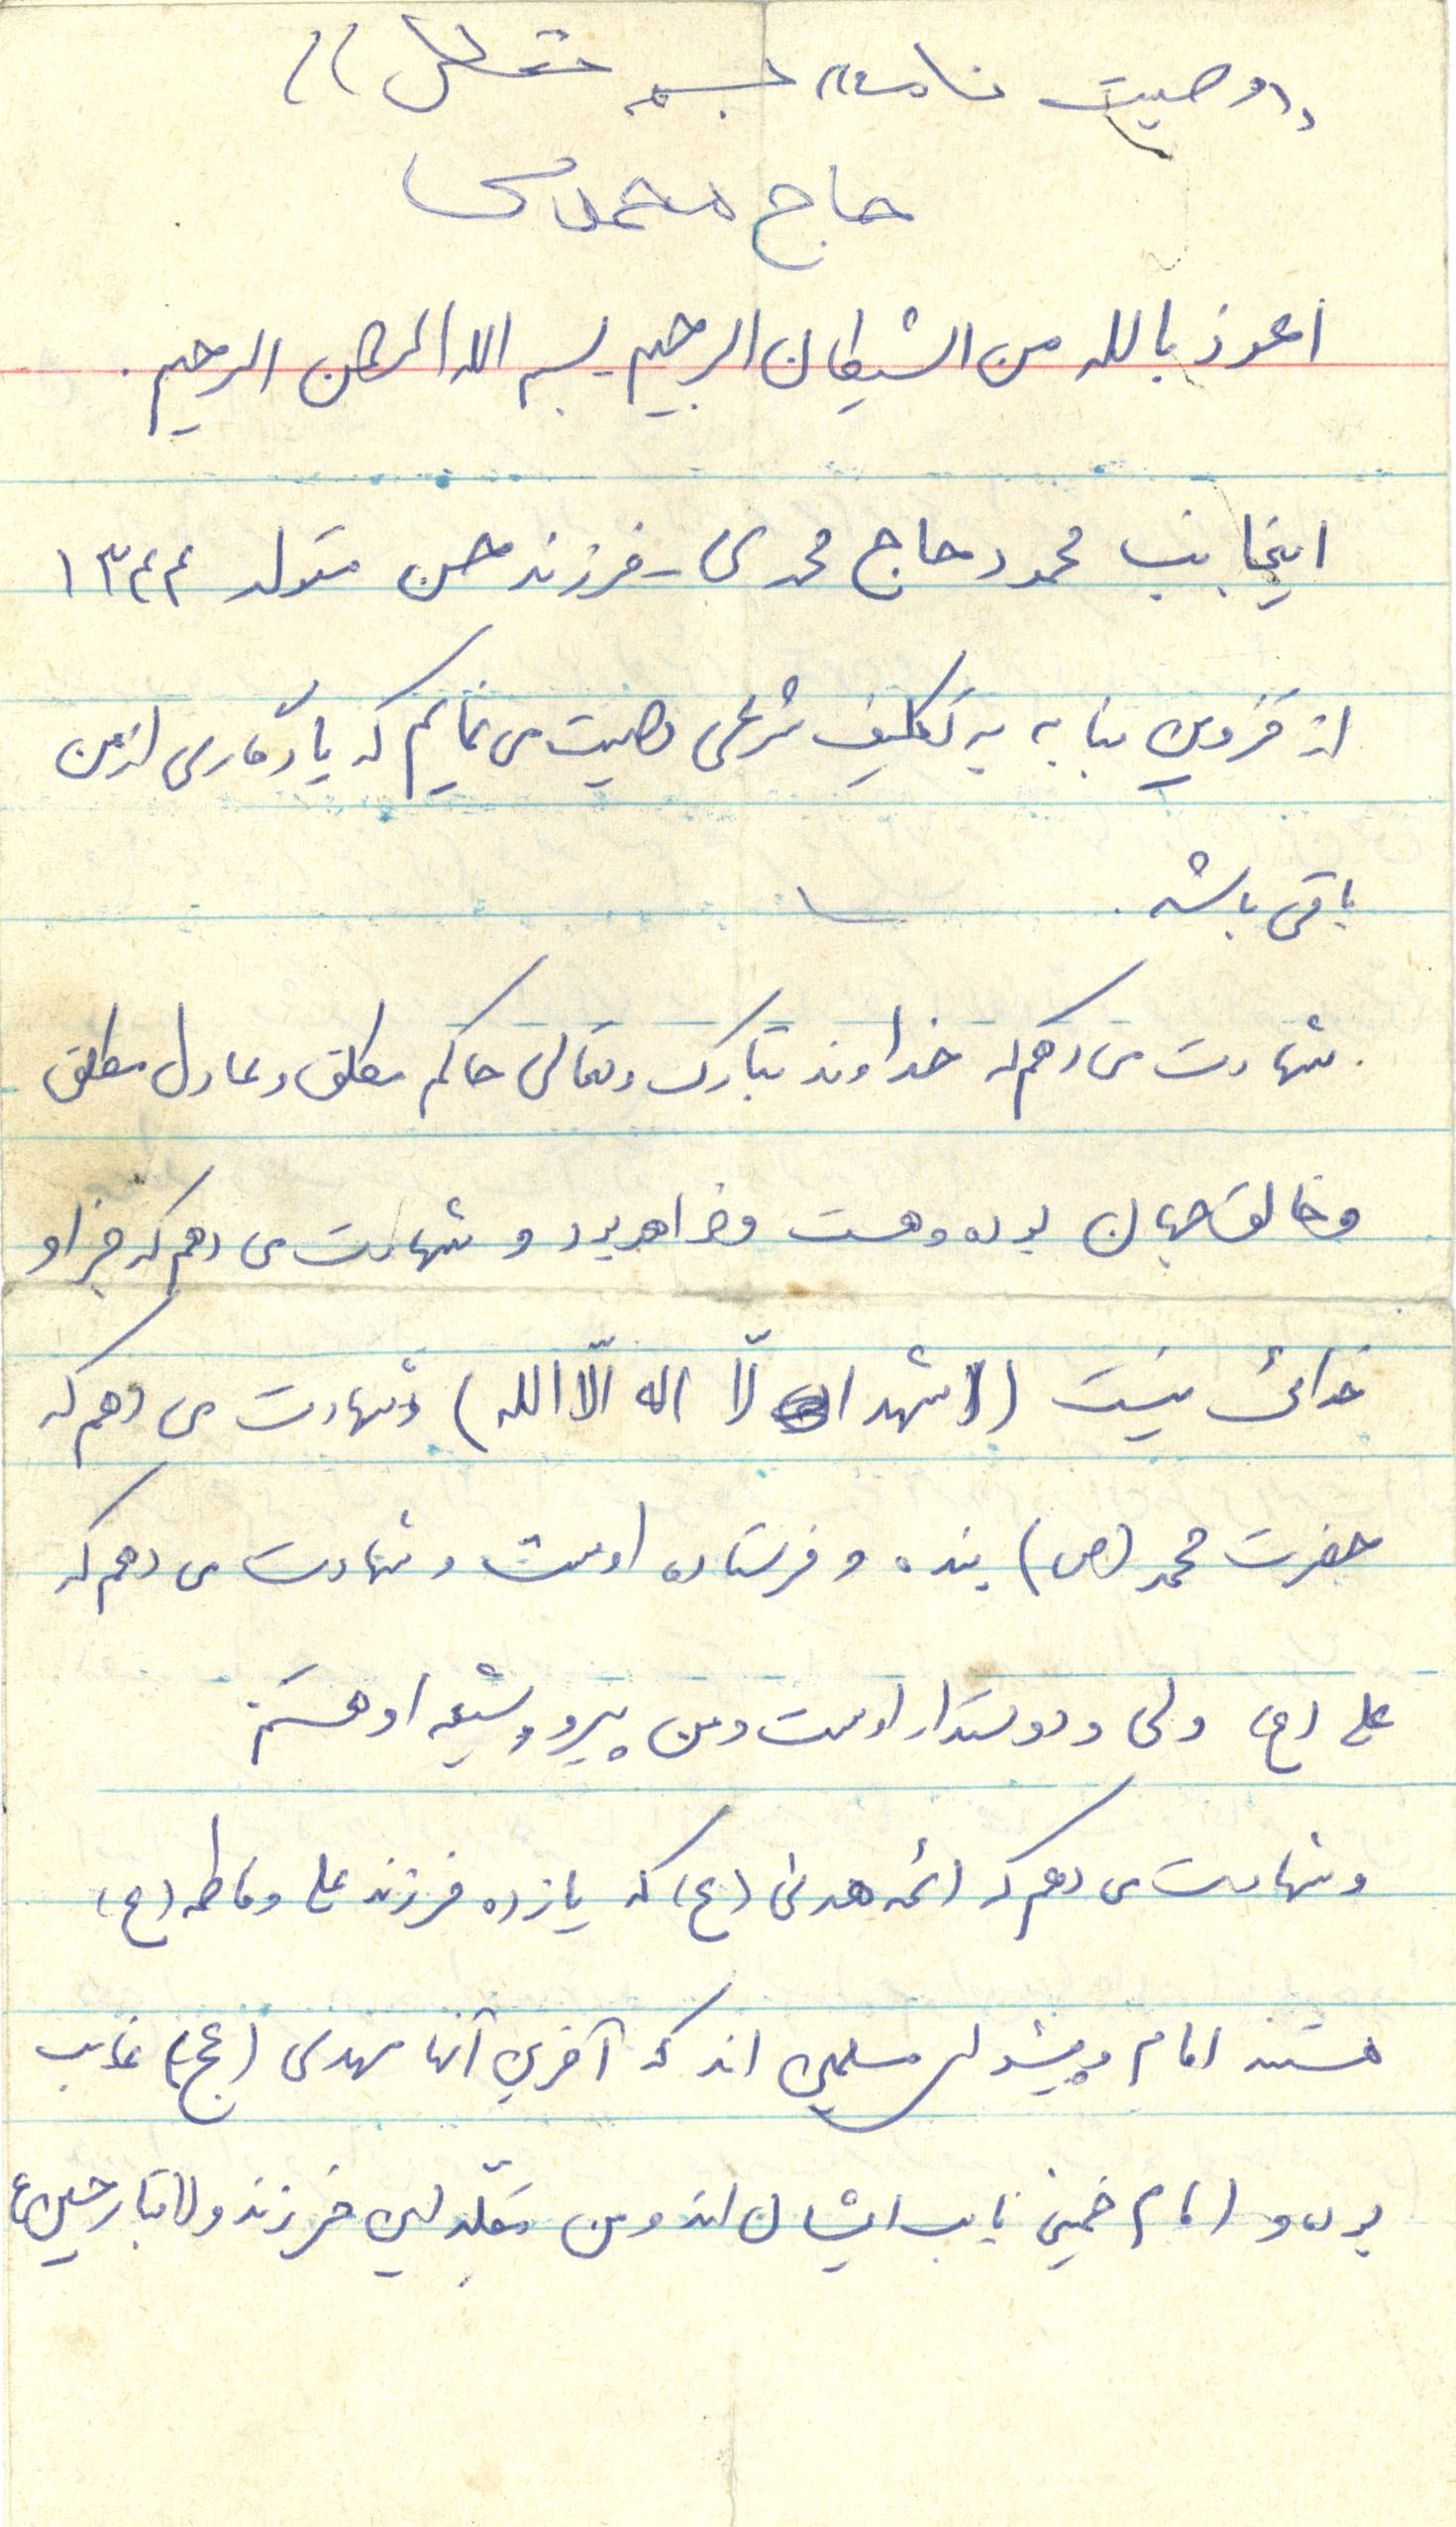 «وصیت نامه» بسمه تعالی //
حاج محمدی
اعوذ بالله من الشیطان الرجیم بسم الله الرحمن الرحیم.
اینجانب محمود حاج محمدی - فرزند حسن متولد ۱۳۴۴
از قزوین بنا به به تکلیف شرعی وصیت می نمایم که یادگاری از من
باقی باشد.
شهادت می دهم که خداوند تبارک و تعالی حاکم مطلق و عادل مطلق
و خالق جهان بوده و هست و خواهد بود و شهادت می دهم که جز او
خدائی نیست (اشهد ان لّا اله الّا الله) و شهادت می دهم که
حضرت محمد (ص) بنده و فرستاده اوست و شهادت می دهم که
علی (ع) ولی و دوستدار اوست و من پیرو و شیعه او هستم
و شهادت می دهم که ائمه هدی (ع) که یازده فرزند علی و فاطمه (ع)
هستند امام و پیشوای مسلمین اند که آخرین آنها مهدی (عج) غایب
بوده و امام خمینی نایب ایشان اند و من مقلّد این فرزند والاتبار حسین ع